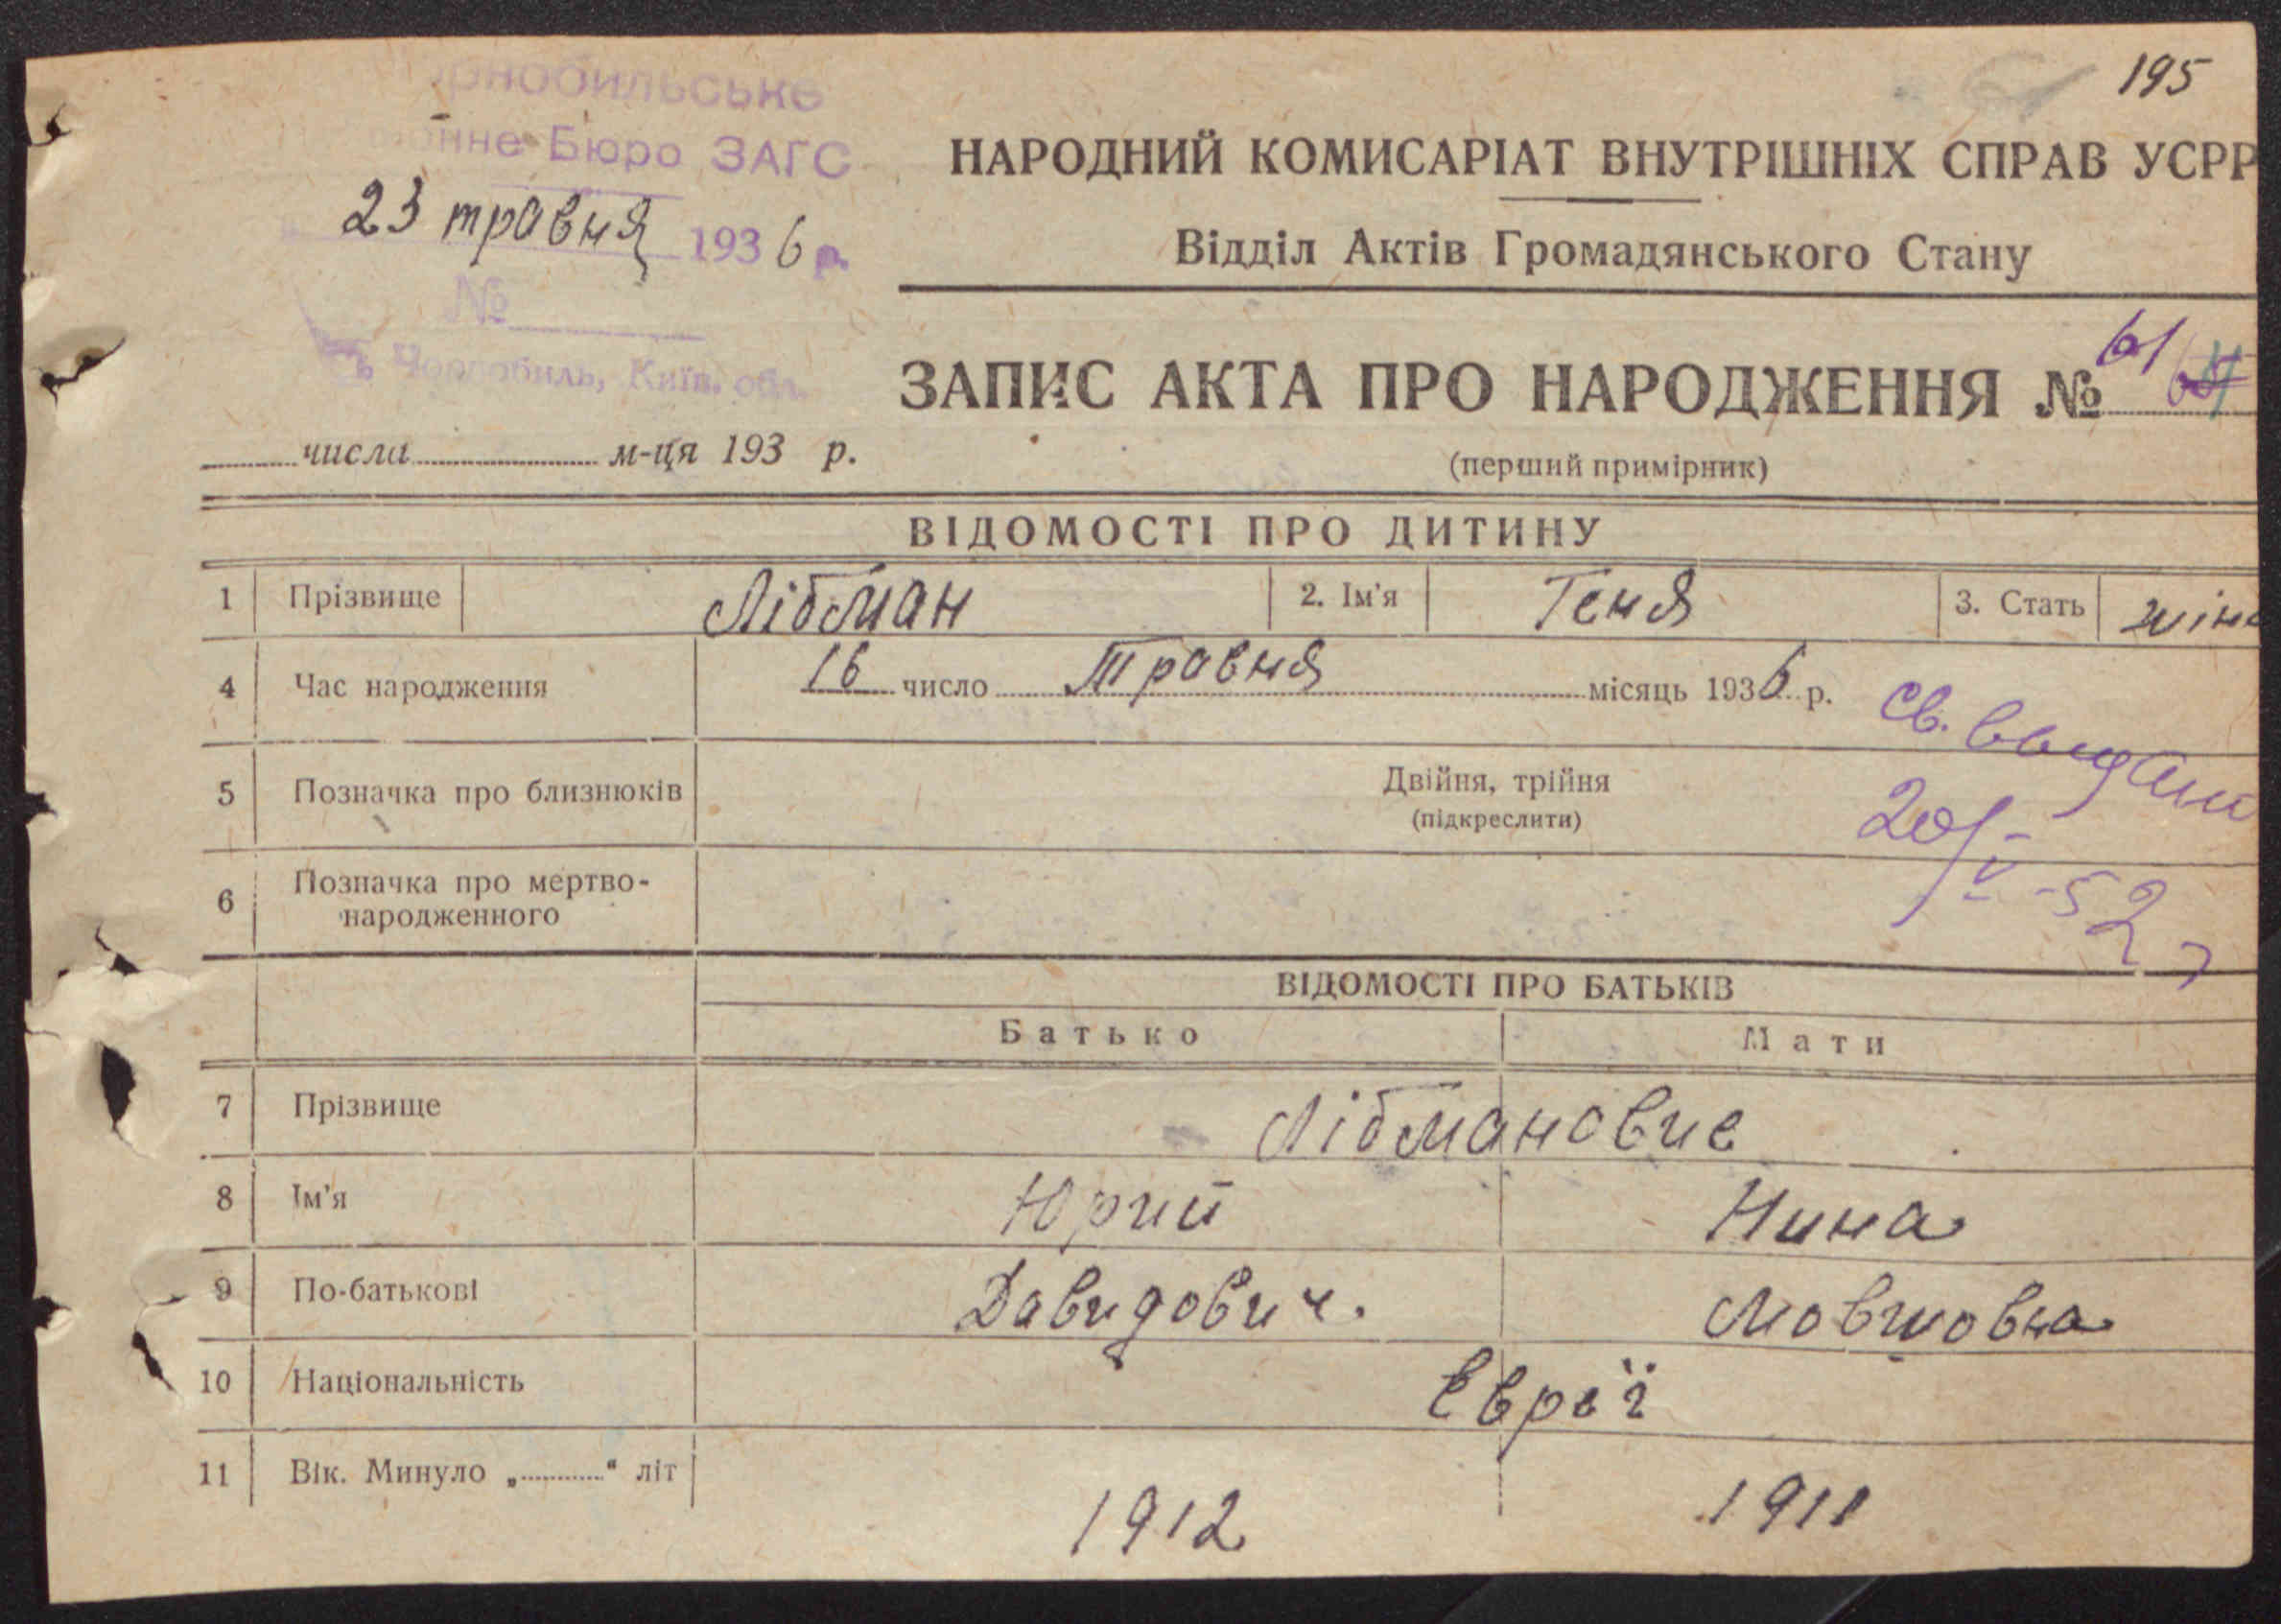 195
рнобильське
нне Бюро ЗАГС
23 травня 1936 р.
№
Чорнобиль, Київ. обл.
числа м-ця 193 р.
НАРОДНИЙ КОМИСАРІАТ ВНУТРІШНІХ СПРАВ УСРР
Відділ Актів Громадянського Стану
ЗАПИС АКТА ПРО НАРОДЖЕННЯ № 61
(перший примірник)
ВІДОМОСТІ ПРО ДИТИНУ
1 Прізвище Лібман 2. Ім'я Геня 3. Стать жін
4 Час народження 16 число Травня місяць 1936 р.
Св. выдано
20/V-52
5 Позначка про близнюків Двійня, трійня
(підкреслити)
6 Позначка про мертво-
народженного
ВІДОМОСТІ ПРО БАТЬКІВ
Батько Мати
7 Прізвище Лібмановие
8 Ім'я Юрий Нина
9 По-батькові Давидович. Мовшовна
10 Національність Євреї
11 Вік. Минуло „............" літ 1912 1911